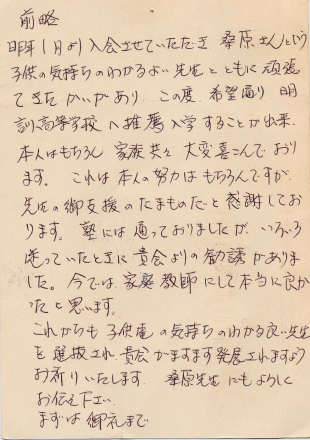 前略
昨年1月より入会させていただき、桑原さんという
子供の気持ちのわかるよい先生とともに頑張っ
てきたかいがあり、この度、希望通り 明
訓高等学校へ推薦入学することが出来、
本人はもちろん 家族共々 大変喜こんでおり
ます。これは本人の努力はもちろんですが
先生の御支援のたまものだと感謝してお
ります。塾には通っておりましたが、いろいろ
迷っていたときに貴会よりの勧誘がありま
した。今では家庭教師にして本当に良か
ったと思います。
これからも 子供達の気持ちのわかる良い先生
を選抜され 貴会がますます発展されますよう
お祈りいたします。桑原先生にもよろしく
お伝え下さい。
まずは御礼まで